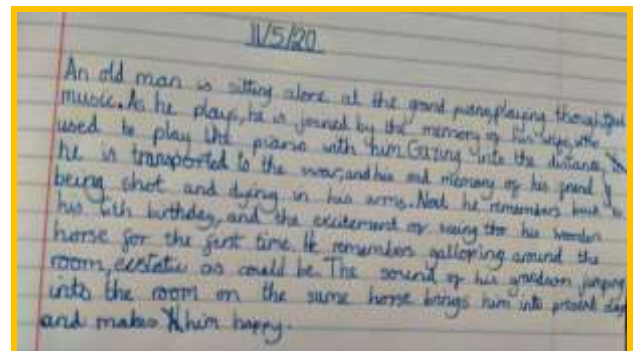 11/5/20
An old man is sitting alone at the grand piano, playing thoughtful
music. As he plays, he is joined by the memory of his wife, who
used to play the piano with him. Gazing into the distance,
he is transported to the war, and his sad memory of his friend
being shot and dying in his arms. Next he remembers back to
his 6th birthday, and the excitement of seeing his wooden
horse for the first time. He remembers galloping around the
room, ecstatic as could be. The sound of his grandson jumping
into the room on the same horse brings him into present day
and makes him happy.